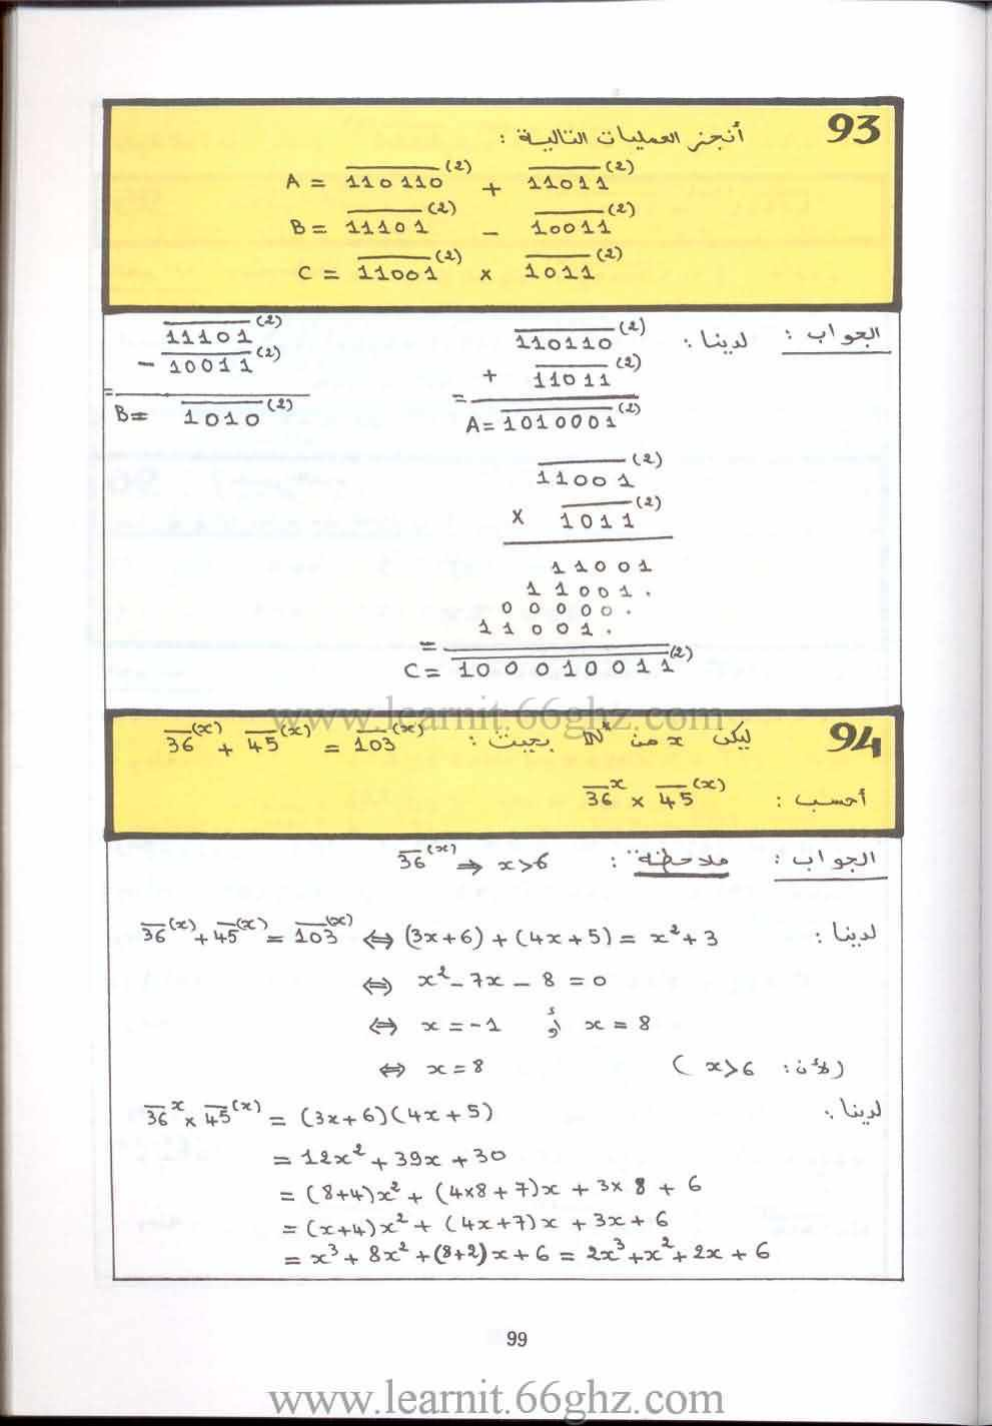 93
أنجز العمليات التالية :
A = 110110⁽²⁾ + 11011⁽²⁾
B = 11101⁽²⁾ − 10011⁽²⁾
C = 11001⁽²⁾ × 1011⁽²⁾
الجواب : لدينا :
110110⁽²⁾
+ 11011⁽²⁾
=
A = 1010001⁽²⁾
11101⁽²⁾
− 10011⁽²⁾
=
B = 1010⁽²⁾
11001⁽²⁾
× 1011⁽²⁾
11001
11001.
00000.
11001.
=
C = 100010011⁽²⁾
www.learnit.66ghz.com
94
ليكن x من IN* بحيث : 36⁽ˣ⁾ + 45⁽ˣ⁾ = 103⁽ˣ⁾
أحسب : 36ˣ × 45⁽ˣ⁾
الجواب : "ملاحظة" : 36⁽ˣ⁾ ⇒ x>6
لدينا : 36⁽ˣ⁾ + 45⁽ˣ⁾ = 103⁽ˣ⁾ ⇔ (3x+6) + (4x+5) = x²+3
⇔ x² − 7x − 8 = 0
⇔ x = −1 أو x = 8
⇔ x = 8 (لأن : x>6)
لدينا : 36ˣ × 45⁽ˣ⁾ = (3x+6)(4x+5)
= 12x² + 39x + 30
= (8+4)x² + (4×8+7)x + 3×8 + 6
= (x+4)x² + (4x+7)x + 3x + 6
= x³ + 8x² + (8+2)x + 6 = 2x³ + x² + 2x + 6
99
www.learnit.66ghz.com